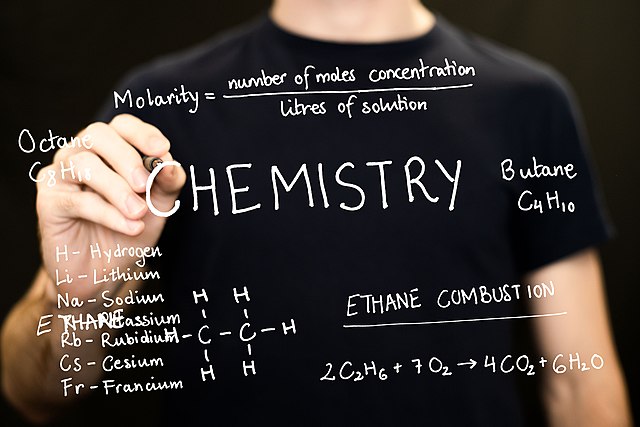 Molarity = number of moles concentration
litres of solution
Octane
C₈H₁₈
CHEMISTRY
Butane
C₄H₁₀
H - Hydrogen
Li - Lithium
Na - Sodium
ETHANE
Rb - Rubidium
Cs - Cesium
Fr - Francium
H H
H - C - C - H
H H
ETHANE COMBUSTION
2C₂H₆ + 7O₂ → 4CO₂ + 6H₂O